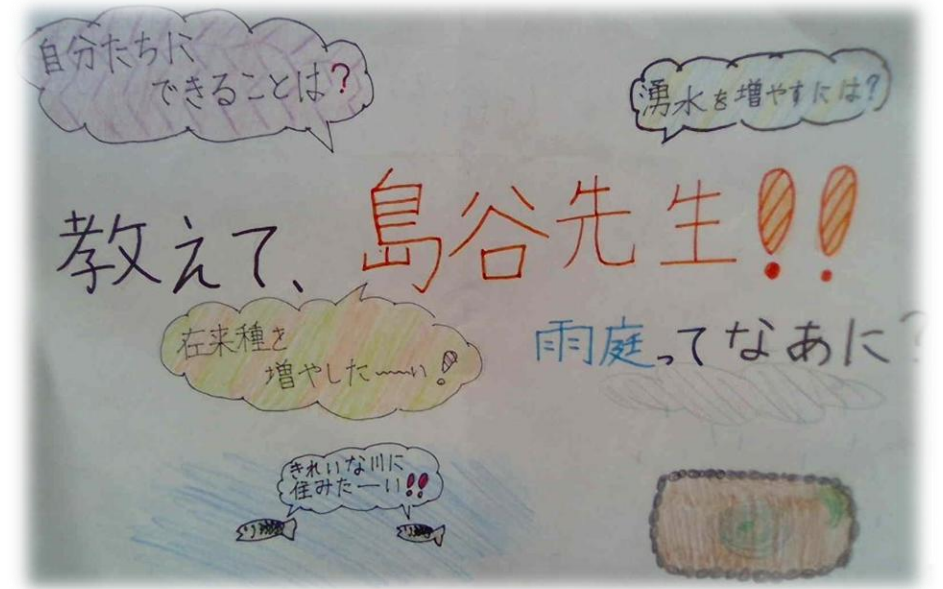 自分たちに
できることは?
湧水を増やすには?
教えて、島谷先生!!
在来種を
増やした〜〜い!
雨庭ってなあに?
きれいな川に
住みたーい!!